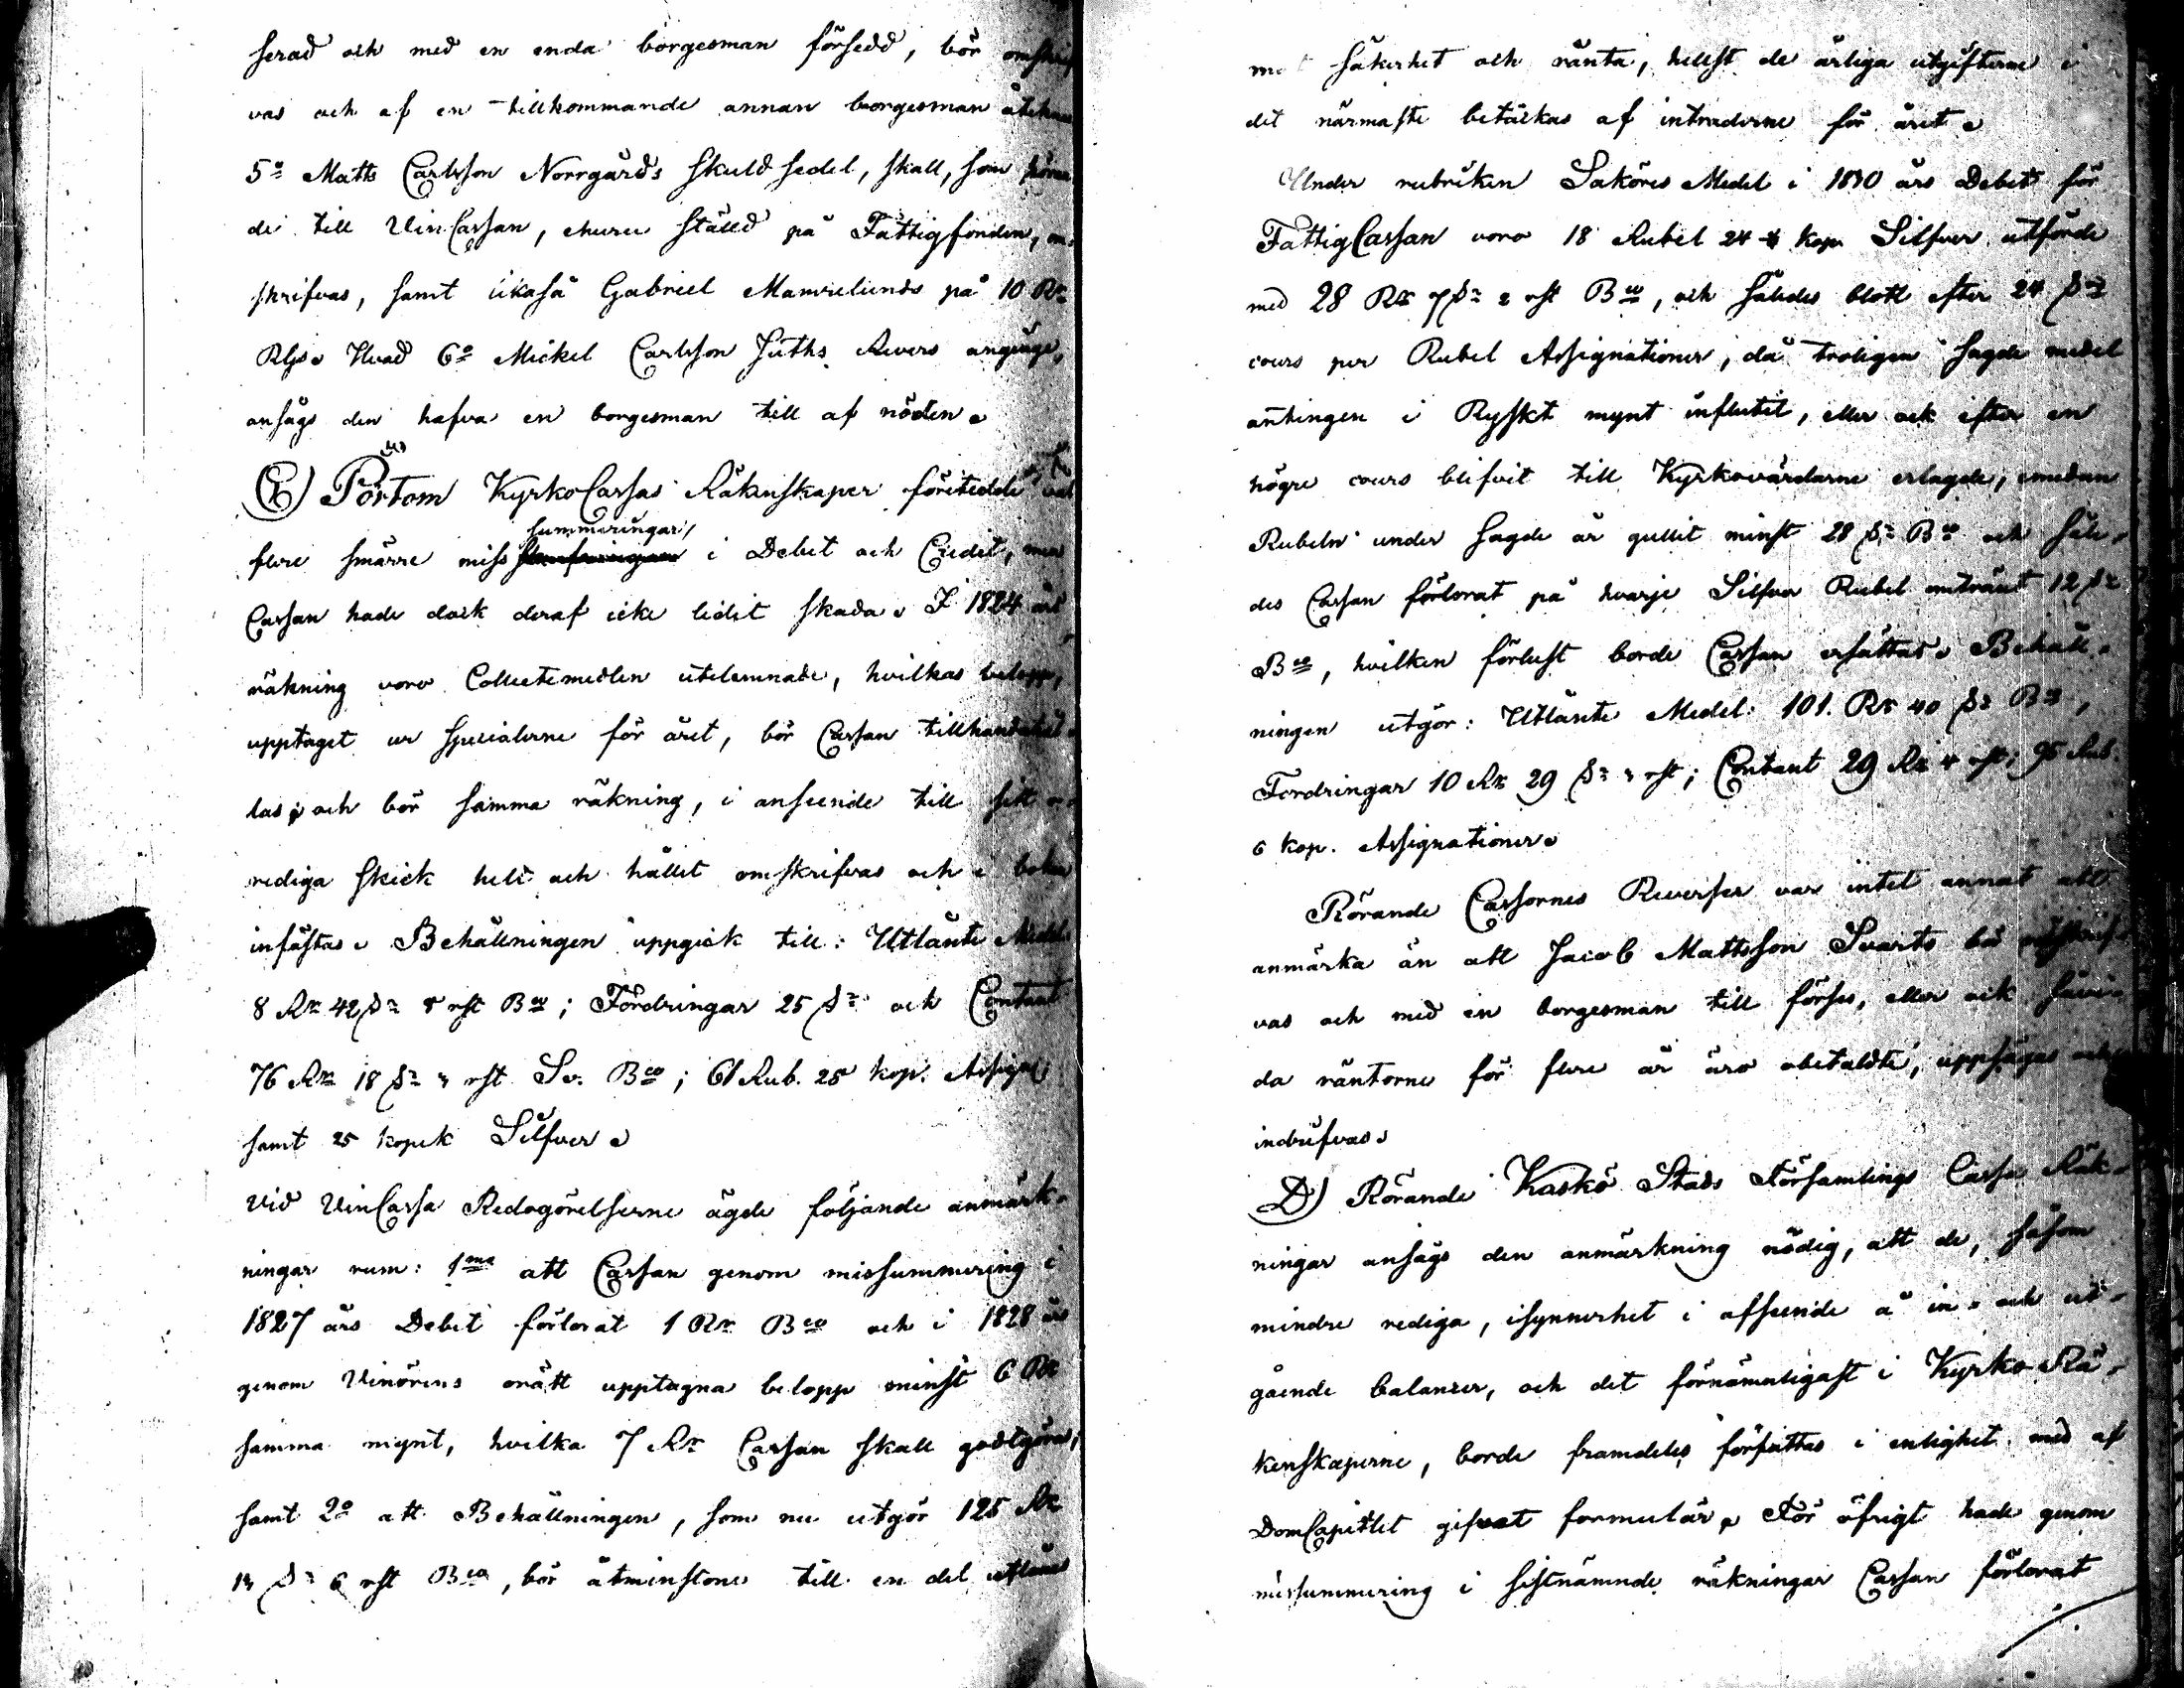 serad och med en enda borgesman försedd, bör omskrif
vas och af en tillkommande annan borgesman
5o Matts Carlsson Norrgårds Skuldsedel, skall, som höran
de till VinCassan, ehuru ställd på Fattigfonden, om
skrifvas, samt likaså Gabriel Manvelunds på 10 Rr
Rgs. Hvad 6o Mickel Carlsson Juths Revers angingo,
ansågs den hafva en borgesman till af nöden.
C) Pörtom KyrkoCassas Räkenskaper företedde väl
summeringar
flere smärre miss i Debet och Credit, men
Cassan hade dock deraf icke lidit skada. I 1824 års
räkning voro Collectemedlen utelemnade, hvilkas belopp,
upptaget ur specialerne för året, bör Cassan tillhandahål
las; och bör samma räkning, i anseende till sitt o
rediga skick helt och hållet omskrifvas och i boken
infästas. Behållningen uppgick till: Utlånte Medel
8 Rr 42 s. 8 rst Bco; Fordringar 25 s. och Contant
76 Rr 18 s. 3 rst Sv. Bco; 61 Rub. 25 kop. Assign.
samt 25 kopek Silfver.
Vid VinCassa Redogörelserne ägde följande anmärk-
ningar rum: 1mo att Cassan genom missummering i
1827 års Debet förlorat 1 Rr Bco och i 1828 års
genom Vinörens orätt upptagna belopp minst 6 Rr
samma mynt, hvilka 7 Rr Cassan skall godtgöras,
samt 2o att Behållningen, som nu utgör 125 Rr
13 s. 6 rst Bco, bör åtminstone till en del utlånas
mot säkerhet och ränta, hellst de årliga utgifterne i
det närmaste betäckas af intraderne för året.
Under rubriken Saköres Medel i 1830 års Debet för
FattigCassan voro 18 Rubel 24 kop. Silfver utförde
med 28 Rr 7 s. 2 rst Bco, och således blott efter 24 s.
cours per Rubel Assignationer, då troligen sagde medel
antingen i Ryskt mynt influtit, eller ock efter en
högre cours blifvit till Kyrkovärdarne erlagde, emedan
Rubeln under sagde år gullit minst 28 s. Bco och såle-
des Cassan förlorat på hvarje Silfver Rubel omtränt 12 s.
Bco, hvilken förlust borde Cassan ersättas. Behåll-
ningen utgör: Utlånte Medel: 101. Rr 40 s. Bco,
Fordringar 10 Rr 29 s. 3 rst; Contant 29 Rr 4 rst; 95 Rub.
6 kop. Assignationer.
Rörande Cassornes Reverser var intet annat att
anmärka än att Jacob Mattsson Svarts bör
vas och med en borgesman till förses, eller ock
da räntorne för flere år äro obetaldte, uppsägas och
indrifvas.
D) Rörande Kaskö Stads Församlings Cassa Räk-
ningar ansågs den anmärkning nödig, att de, såsom
mindre rediga, isynnerhet i afseende å in- och ut-
gående balanser, och det förnämnligast i Kyrko-Rä-
kenskaperne, borde framdeles författas i enlighet med af
DomCapitlet gifvet formulär. För öfrigt hade genom
missummering i sistnämnde räkningar Cassan förlorat